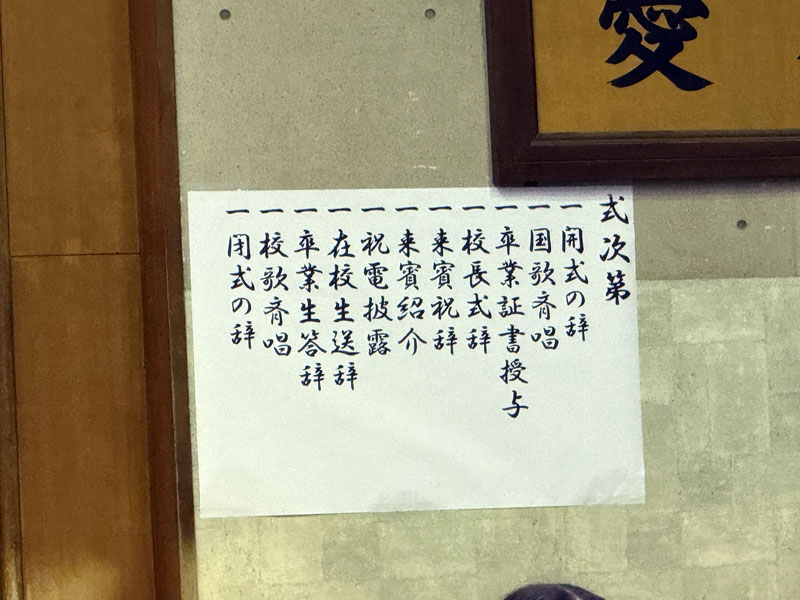 愛
式次第
一 開式の辞
一 国歌斉唱
一 卒業証書授与
一 校長式辞
一 来賓祝辞
一 来賓紹介
一 祝電披露
一 在校生送辞
一 卒業生答辞
一 校歌斉唱
一 閉式の辞